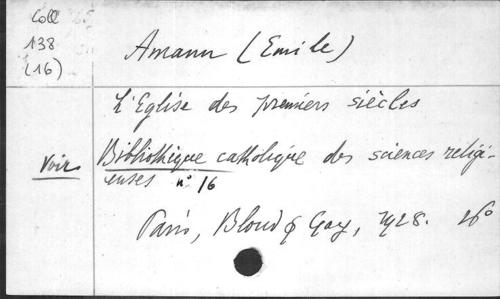 Coll
138
(16)
Amann (Emile)
L'Eglise des premiers siècles
Voir Bibliothèque catholique des sciences religi-
euses n° 16
Paris, Bloud & Gay, 1928. 16°